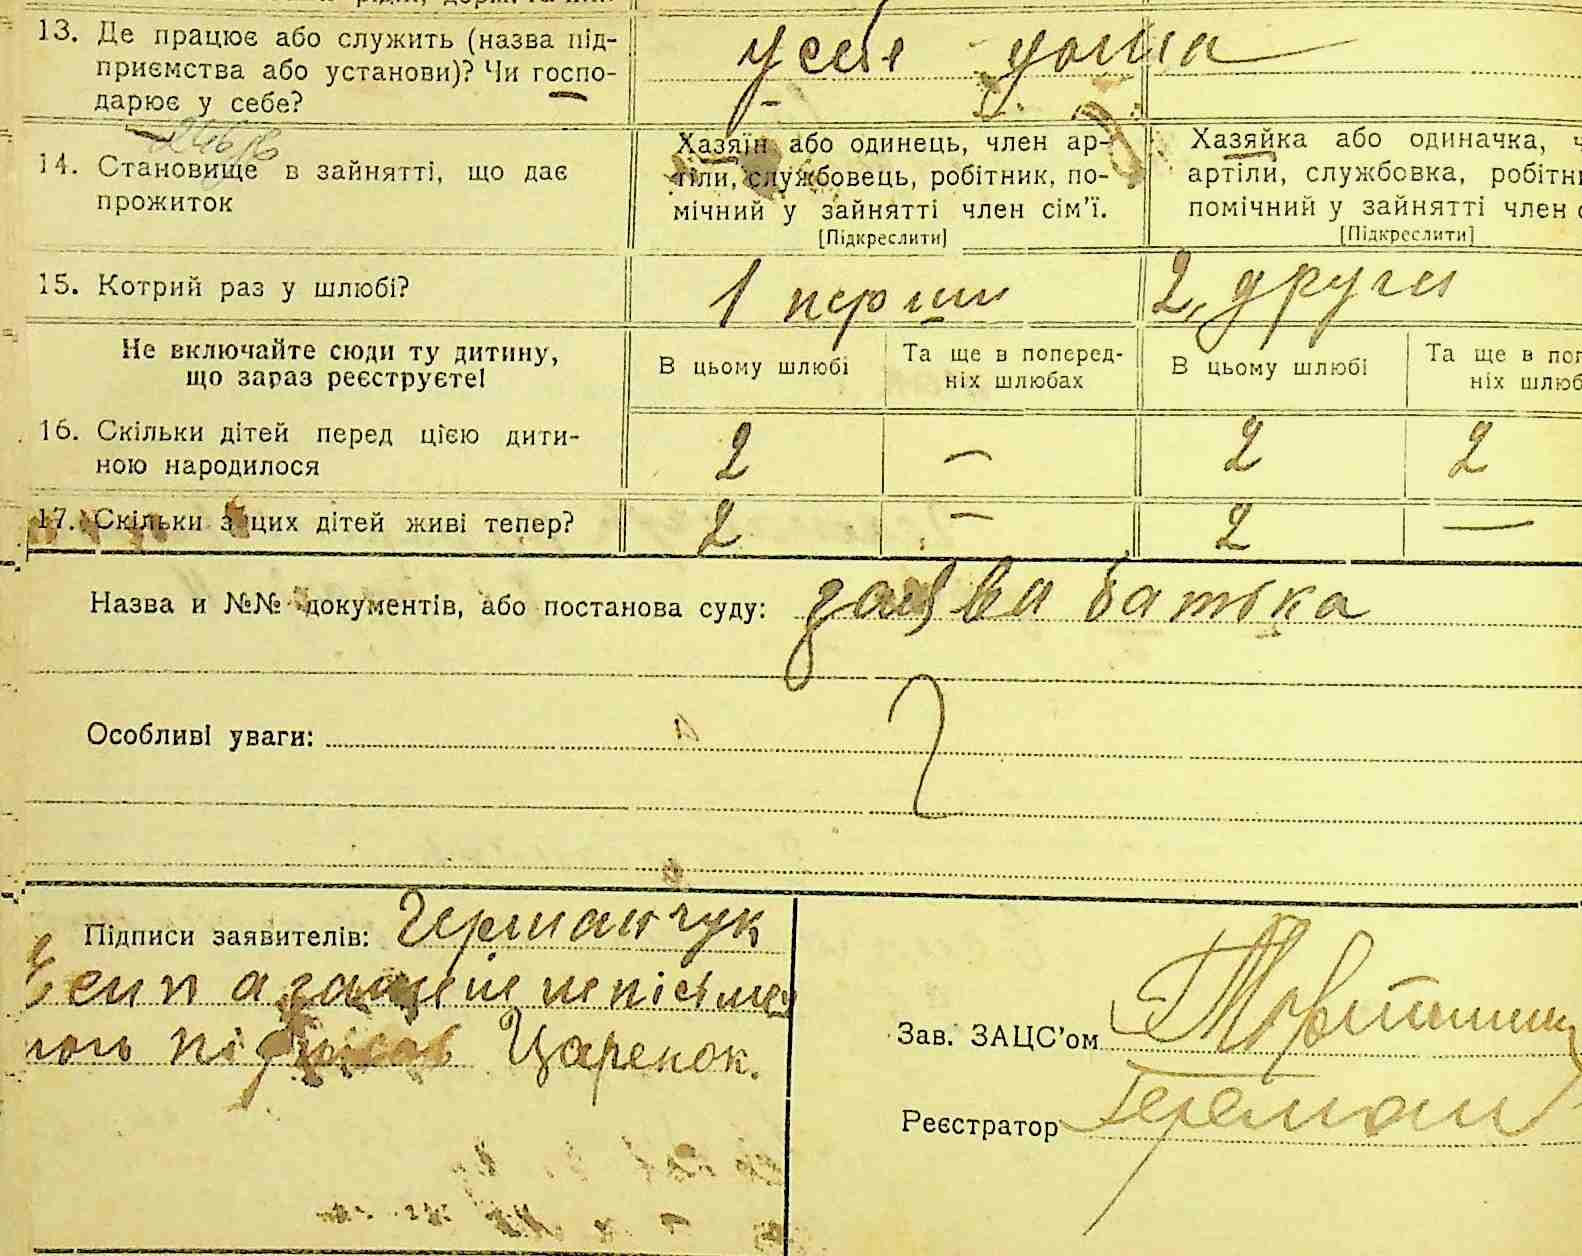 13. Де працює або служить (назва під-
приємства або установи)? Чи госпо-
дарює у себе?
у себе дома
14. Становище в зайнятті, що дає
прожиток
Хазяїн або одинець, член ар-
тіли, службовець, робітник, по-
мічний у зайнятті член сім'ї.
[Підкреслити]
Хазяйка або одиначка, ч
артіли, службовка, робітн
помічний у зайнятті член с
[Підкреслити]
15. Котрий раз у шлюбі?
1 перши
2, други
Не включайте сюди ту дитину,
що зараз реєструєте!
В цьому шлюбі
Та ще в поперед-
ніх шлюбах
В цьому шлюбі
Та ще в поп
ніх шлюб
16. Скільки дітей перед цією дити-
ною народилося
2 — 2 2
17. Скільки з цих дітей живі тепер?
2 — 2 —
Назва и №№ документів, або постанова суду: заява батька
Особливі уваги:
Підписи заявителів: Германчук
а за його непісьмен
Царенок.
Зав. ЗАЦС'ом
Реєстратор